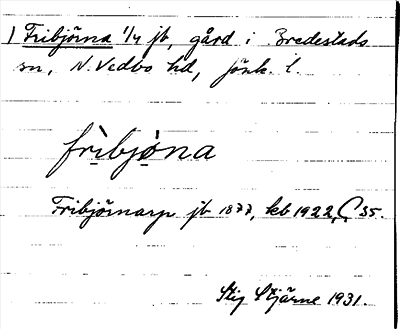 1 Fribjörna 1/4 jb, gård i Bredestads
sn, N. Vedbo hd, Jönk. l.
frìbjǫna
Fribjörnarp jb 1877, kb 1922, C 35.
Stig Stjärne 1931.